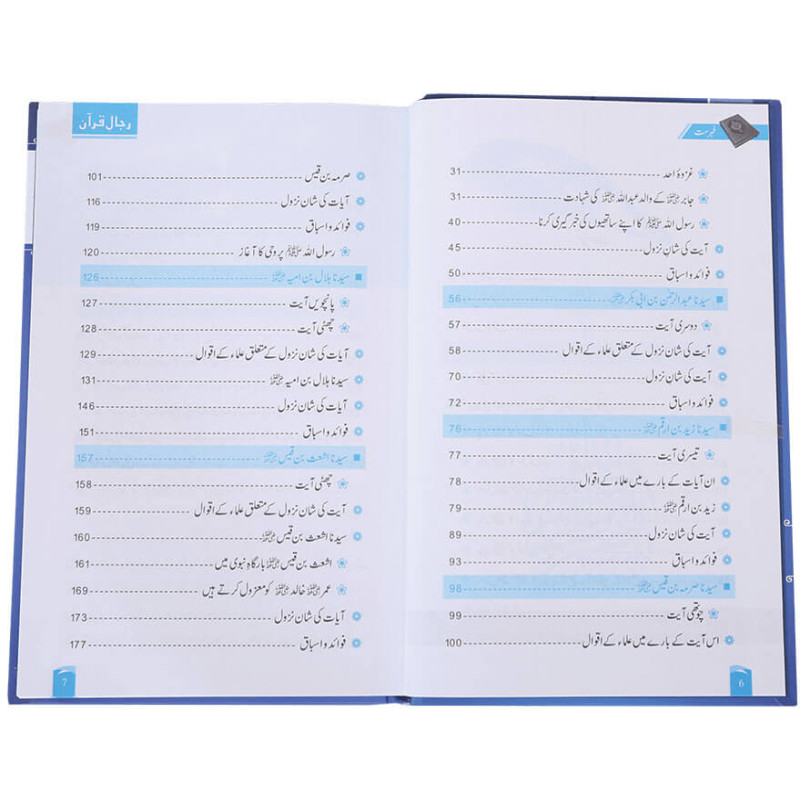 فہرست
غزوۂ احد 31
جابر رضی اللہ عنہ کے والد عبداللہ رضی اللہ عنہ کی شہادت 31
رسول اللہ ﷺ کا اپنے ساتھیوں کی خبر گیری کرنا 40
آیت کی شانِ نزول 45
فوائد و اسباق 50
سیدنا عبدالرحمٰن بن ابی بکر رضی اللہ عنہ 56
دوسری آیت 57
آیت کی شان نزول کے متعلق علماء کے اقوال 58
آیت کی شان نزول 70
فوائد و اسباق 72
سیدنا زید بن ارقم رضی اللہ عنہ 76
تیسری آیت 77
ان آیات کے بارے میں علماء کے اقوال 78
زید بن ارقم رضی اللہ عنہ 79
آیت کی شان نزول 89
فوائد و اسباق 93
سیدنا صرمہ بن قیس رضی اللہ عنہ 98
چوتھی آیت 99
اس آیت کے بارے میں علماء کے اقوال 100
6
رجال قرآن
صرمہ بن قیس 101
آیات کی شان نزول 116
فوائد و اسباق 119
رسول اللہ ﷺ پر وحی کا آغاز 120
سیدنا ہلال بن امیہ رضی اللہ عنہ 126
پانچویں آیت 127
چھٹی آیت 128
آیات کی شان نزول کے متعلق علماء کے اقوال 129
سیدنا ہلال بن امیہ رضی اللہ عنہ 131
آیات کی شان نزول 146
فوائد و اسباق 151
سیدنا اشعث بن قیس رضی اللہ عنہ 157
چھٹی آیت 158
آیت کی شان نزول کے متعلق علماء کے اقوال 159
سیدنا اشعث بن قیس رضی اللہ عنہ 160
اشعث بن قیس رضی اللہ عنہ بارگاہِ نبوی میں 161
عمر رضی اللہ عنہ خالد رضی اللہ عنہ کو معزول کرتے ہیں 169
آیات کی شان نزول 173
فوائد و اسباق 177
7